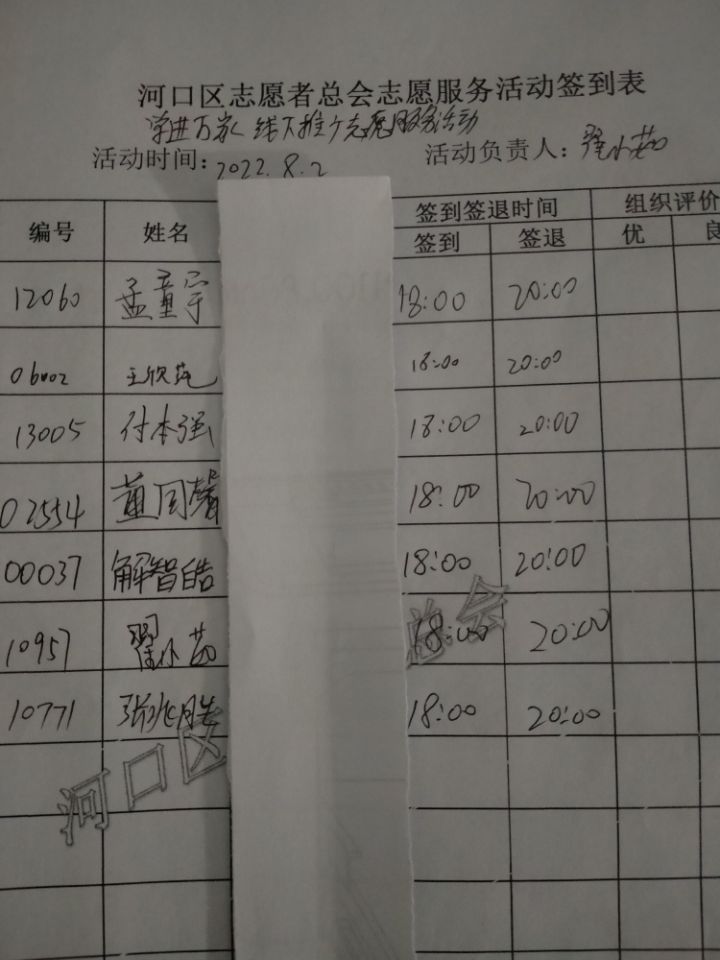 河口区志愿者总会志愿服务活动签到表
学进万家 线下推广志愿服务活动
活动时间：2022.8.2 活动负责人：翟小茹
编号 姓名 签到签退时间 组织评价
签到 签退 优 良
12060 孟童宇 18:00 20:00
06002 王欣苑 18:00 20:00
13005 付本强 18:00 20:00
02554 董同馨 18:00 20:00
00037 解智皓 18:00 20:00
10957 翟小茹 18:00 20:00
10771 张兆胜 18:00 20:00
河口区 总会